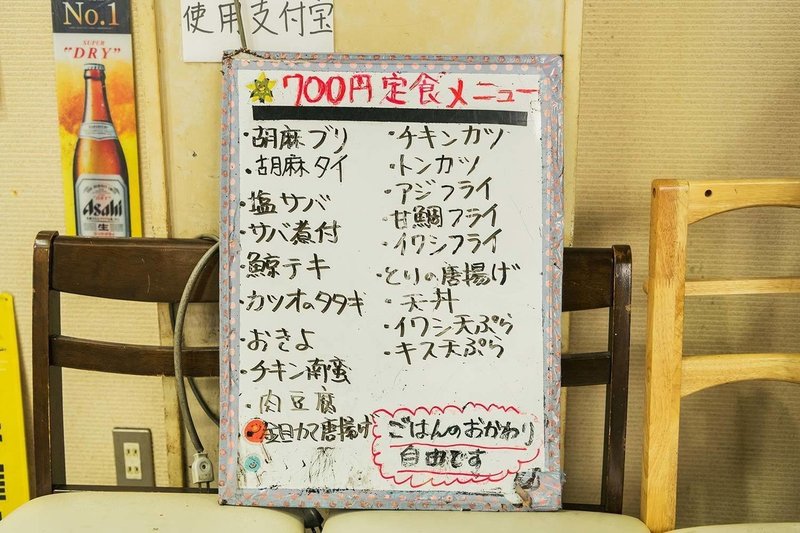 No.1
SUPER
"DRY"
Asahi
生
使用支付宝
700円定食メニュー
・胡麻ブリ
・胡麻タイ
・塩サバ
・サバ煮付
・鯨テキ
・カツオのタタキ
・おきよ
・チキン南蛮
・肉豆腐
金目カマ唐揚げ
・チキンカツ
・トンカツ
・アジフライ
・甘鯛フライ
・イワシフライ
・とりの唐揚げ
・天丼
・イワシ天ぷら
・キス天ぷら
ごはんのおかわり
自由です